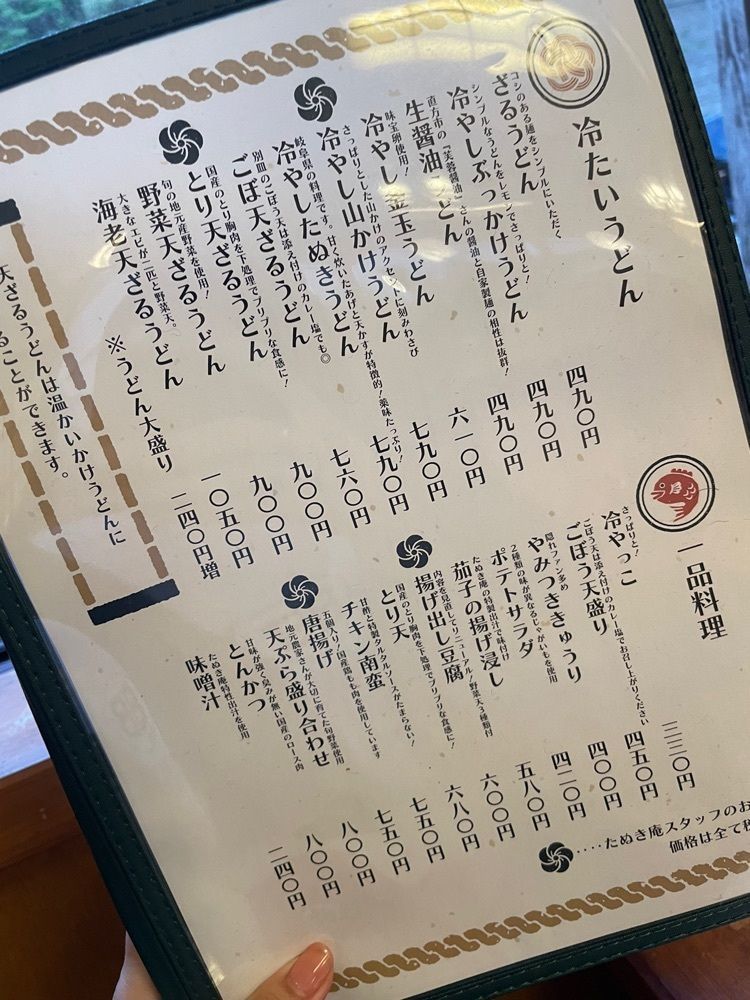 冷たいうどん
コシのある麺をシンプルにいただく
ざるうどん
四九〇円
シンプルなうどんをレモンでさっぱりと!
冷やしぶっかけうどん
四九〇円
直方市の『芙蓉醤油』さんの醤油と自家製麺の相性は抜群!
生醤油うどん
四九〇円
味宝卵使用!
冷やし釜玉うどん
六一〇円
さっぱりとした山かけのアクセントに刻みわさび
冷やし山かけうどん
七九〇円
岐阜県の料理です。甘く炊いたあげと天かすが特徴的!薬味たっぷり!
冷やしたぬきうどん
七九〇円
別皿のごぼう天は添え付けのカレー塩でも◎
ごぼ天ざるうどん
七六〇円
国産のとり胸肉を下処理でプリプリな食感に!
とり天ざるうどん
九〇〇円
旬の地元産野菜を使用!
野菜天ざるうどん
九〇〇円
大きなエビが二匹と野菜天。
海老天ざるうどん
一〇五〇円
※うどん大盛り
二四〇円増
天ざるうどんは温かいかけうどんに
ることができます。
一品料理
さっぱりと!
冷やっこ
三三〇円
ごぼう天は添え付けのカレー塩でお召し上がりください
ごぼう天盛り
四五〇円
隠れファン多め
やみつききゅうり
四〇〇円
2種類の味が異なるじゃがいもを使用
ポテトサラダ
四二〇円
たぬき庵の特製出汁で味付け
茄子の揚げ浸し
五八〇円
内容を見直してリニューアル!野菜天3種類付
揚げ出し豆腐
六〇〇円
国産のとり胸肉を下処理でプリプリな食感に!
とり天
六八〇円
甘酢と特製タルタルソースがたまらない!
チキン南蛮
七五〇円
五個入り!国産鶏もも肉を使用しています
唐揚げ
七五〇円
地元農家さんが大切に育てた旬野菜使用
天ぷら盛り合わせ
八〇〇円
甘味が強く臭みが無い国産のロース肉
とんかつ
八〇〇円
たぬき庵特性出汁を使用
味噌汁
二四〇円
‥‥たぬき庵スタッフのお
価格は全て税